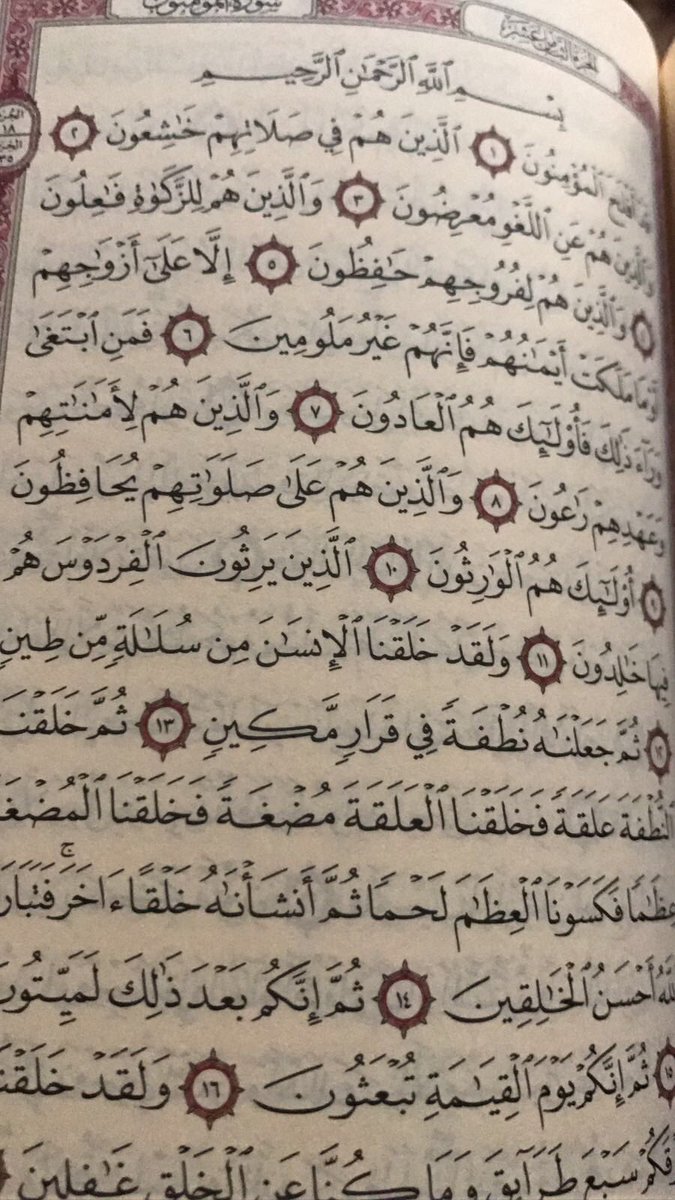 سورة المؤمنون
الجزء الثامن عشر
الجزء
١٨
٣٥
بِسْمِ ٱللَّهِ ٱلرَّحْمَٰنِ ٱلرَّحِيمِ
قَدْ أَفْلَحَ ٱلْمُؤْمِنُونَ ١ ٱلَّذِينَ هُمْ فِي صَلَاتِهِمْ خَٰشِعُونَ ٢
وَٱلَّذِينَ هُمْ عَنِ ٱللَّغْوِ مُعْرِضُونَ ٣ وَٱلَّذِينَ هُمْ لِلزَّكَوٰةِ فَٰعِلُونَ
٤ وَٱلَّذِينَ هُمْ لِفُرُوجِهِمْ حَٰفِظُونَ ٥ إِلَّا عَلَىٰٓ أَزْوَٰجِهِمْ
أَوْ مَا مَلَكَتْ أَيْمَٰنُهُمْ فَإِنَّهُمْ غَيْرُ مَلُومِينَ ٦ فَمَنِ ٱبْتَغَىٰ
وَرَآءَ ذَٰلِكَ فَأُو۟لَٰٓئِكَ هُمُ ٱلْعَادُونَ ٧ وَٱلَّذِينَ هُمْ لِأَمَٰنَٰتِهِمْ
وَعَهْدِهِمْ رَٰعُونَ ٨ وَٱلَّذِينَ هُمْ عَلَىٰ صَلَوَٰتِهِمْ يُحَافِظُونَ
٩ أُو۟لَٰٓئِكَ هُمُ ٱلْوَٰرِثُونَ ١٠ ٱلَّذِينَ يَرِثُونَ ٱلْفِرْدَوْسَ هُمْ
فِيهَا خَٰلِدُونَ ١١ وَلَقَدْ خَلَقْنَا ٱلْإِنسَٰنَ مِن سُلَٰلَةٍ مِّن طِينٍ
١٢ ثُمَّ جَعَلْنَٰهُ نُطْفَةً فِي قَرَارٍ مَّكِينٍ ١٣ ثُمَّ خَلَقْنَا
ٱلنُّطْفَةَ عَلَقَةً فَخَلَقْنَا ٱلْعَلَقَةَ مُضْغَةً فَخَلَقْنَا ٱلْمُضْغَةَ
عِظَٰمًا فَكَسَوْنَا ٱلْعِظَٰمَ لَحْمًا ثُمَّ أَنشَأْنَٰهُ خَلْقًا ءَاخَرَ ۚ فَتَبَارَكَ
ٱللَّهُ أَحْسَنُ ٱلْخَٰلِقِينَ ١٤ ثُمَّ إِنَّكُم بَعْدَ ذَٰلِكَ لَمَيِّتُونَ
١٥ ثُمَّ إِنَّكُمْ يَوْمَ ٱلْقِيَٰمَةِ تُبْعَثُونَ ١٦ وَلَقَدْ خَلَقْنَا
فَوْقَكُمْ سَبْعَ طَرَآئِقَ وَمَا كُنَّا عَنِ ٱلْخَلْقِ غَٰفِلِينَ